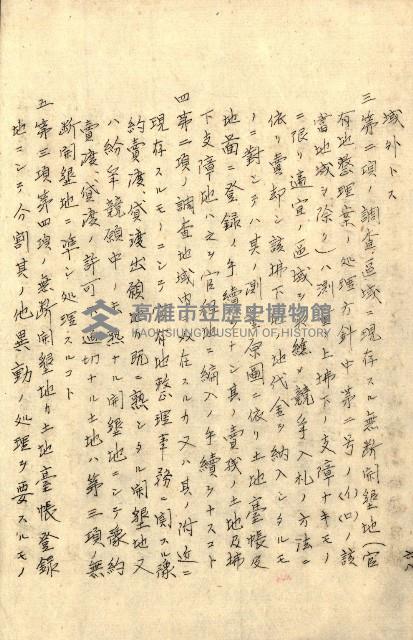 域外トス
三 第二項ノ調査區域ニ現存スル無断開墾地(官
有地整理案ノ処理方針中第二号ノ(イ)(ロ)ノ該
當地域ヲ除ク)ハ測量上拂下ノ支障ナキモノ
ニ限リ適宜ノ區域ヲ 競爭入札ノ方法ニ
依リ賣却シ該拂下 地代金ヲ納入シタルモ
ノニ對シテハ其ノ測 原圖ニ依リ土地臺帳及
地圖ニ登録ノ手續ヲナシ其ノ賣残ノ土地及拂
下支障地ハ之ヲ官 ニ編入ノ手續ヲナスコト
四 第二項ノ調査地域内 散在スルカ又ハ其ノ附近ニ
現存スルモノニシテ 有地整理事務ニ関スル豫
約賣渡貸渡出願 カ既ニ熟シタル開墾地又
ハ紛争競願中ノ 熟ナル開墾地ニシテ豫約
賣渡、貸渡ノ許可 適切ナル土地ハ第三項ノ無
断開墾地ニ準シ処理スルコト
五 第三項第四項ノ無断開墾地カ土地臺帳登録
地ニシテ分割其ノ他異動ノ処理ヲ要スルモノ
高雄市立歷史博物館
KAOHSIUNG MUSEUM OF HISTORY